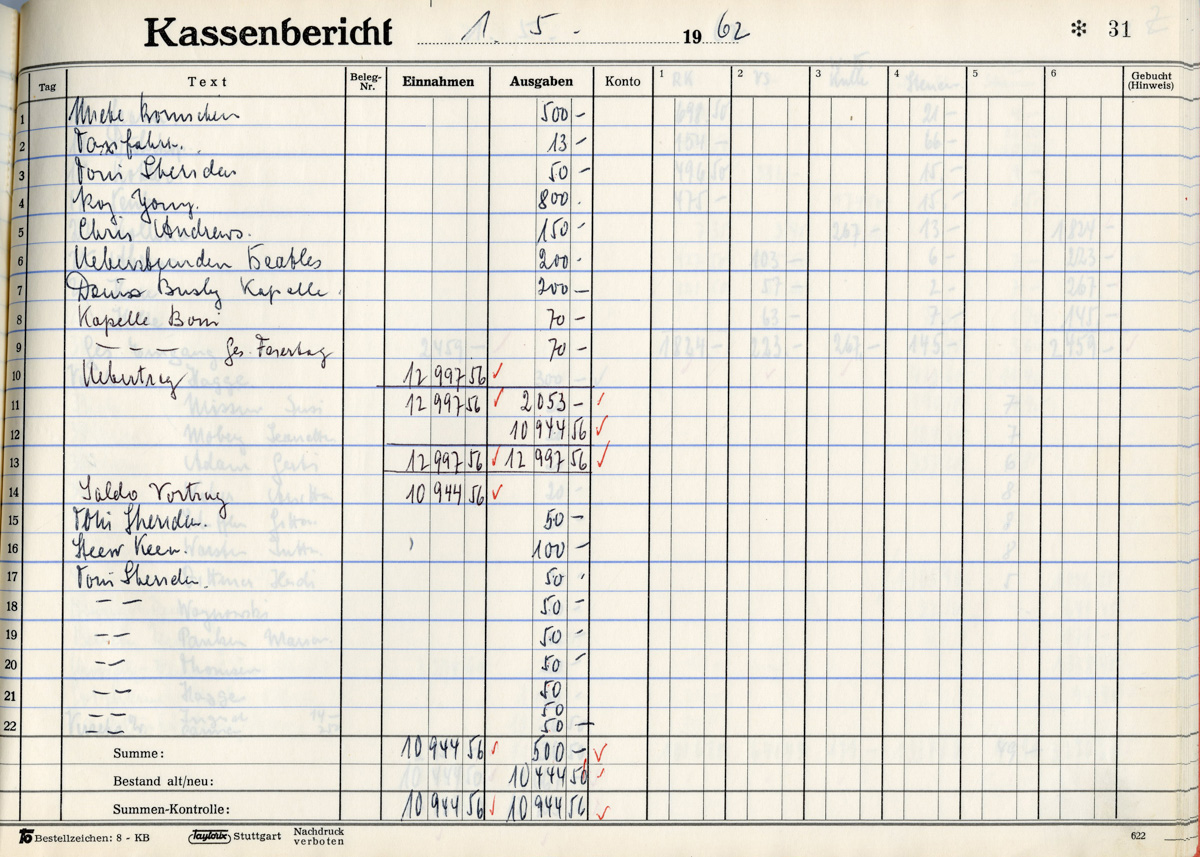 Kassenbericht 1. 5. 1962 * 31
Tag Text Beleg-Nr. Einnahmen Ausgaben Konto 1 2 3 4 5 6 Gebucht (Hinweis)
1 Miete 500 –
2 Taxifahrt. 13 –
3 Toni Sheridan 50 –
4 Roy Young. 800.
5 Chris Andrews. 150 –
6 Ueberstunden Beatles 200 –
7 Busby Kapelle. 200 –
8 Kapelle Boni 70 –
9 – – – Ges. Feiertag 70 –
10 Uebertrag 12 997 56 ✓
11 12 997 56 ✓ 2 053 – ✓
12 10 944 56 ✓
13 12 997 56 ✓ 12 997 56 ✓
14 Saldo Vortrag 10 944 56 ✓
15 Toni Sheridan. 50 –
16 100 –
17 Toni Sheridan. 50
18 – – 50 –
19 – – 50 –
20 – – 50 –
21 – – 50
50
22 – – 50 –
Summe: 10 944 56 ✓ 500 – ✓
Bestand alt/neu: 10 444 56 ✓
Summen-Kontrolle: 10 944 56 ✓ 10 944 56 ✓
Bestellzeichen: 8 - KB Taylorix Stuttgart Nachdruck verboten 622